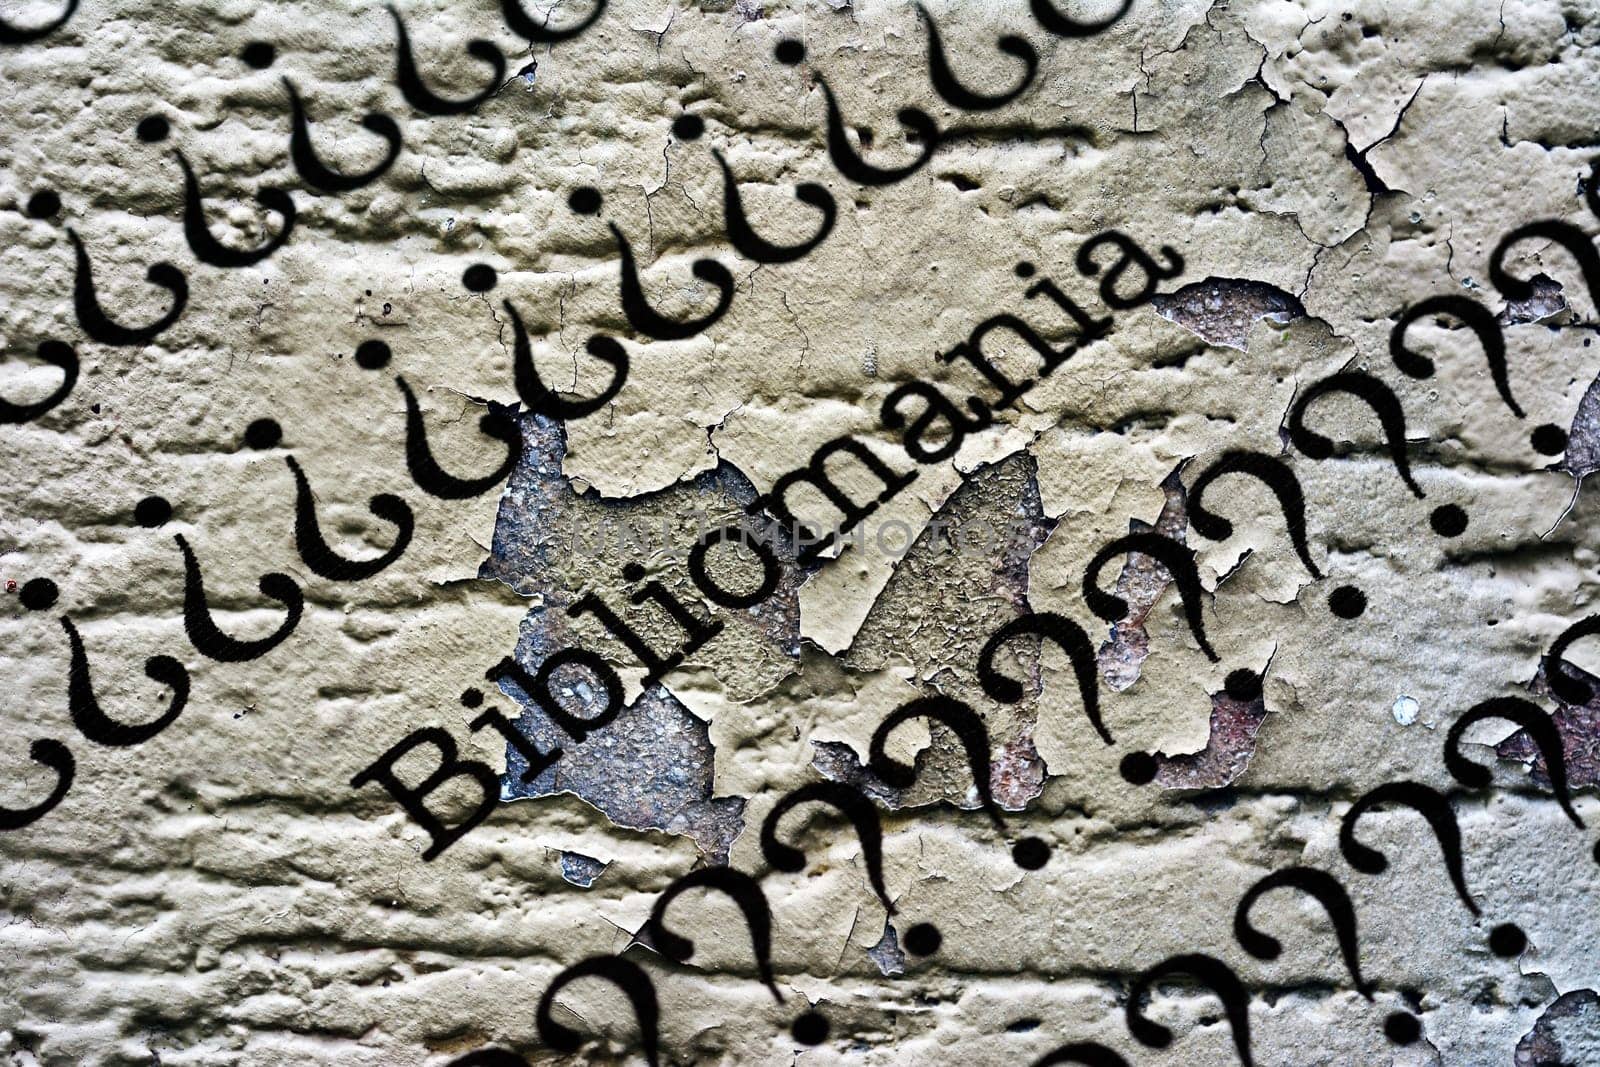 ¿¿¿¿¿
¿¿¿¿¿¿¿¿¿¿
Bibliomania
??????????
?????
UNLIMPHOTOS